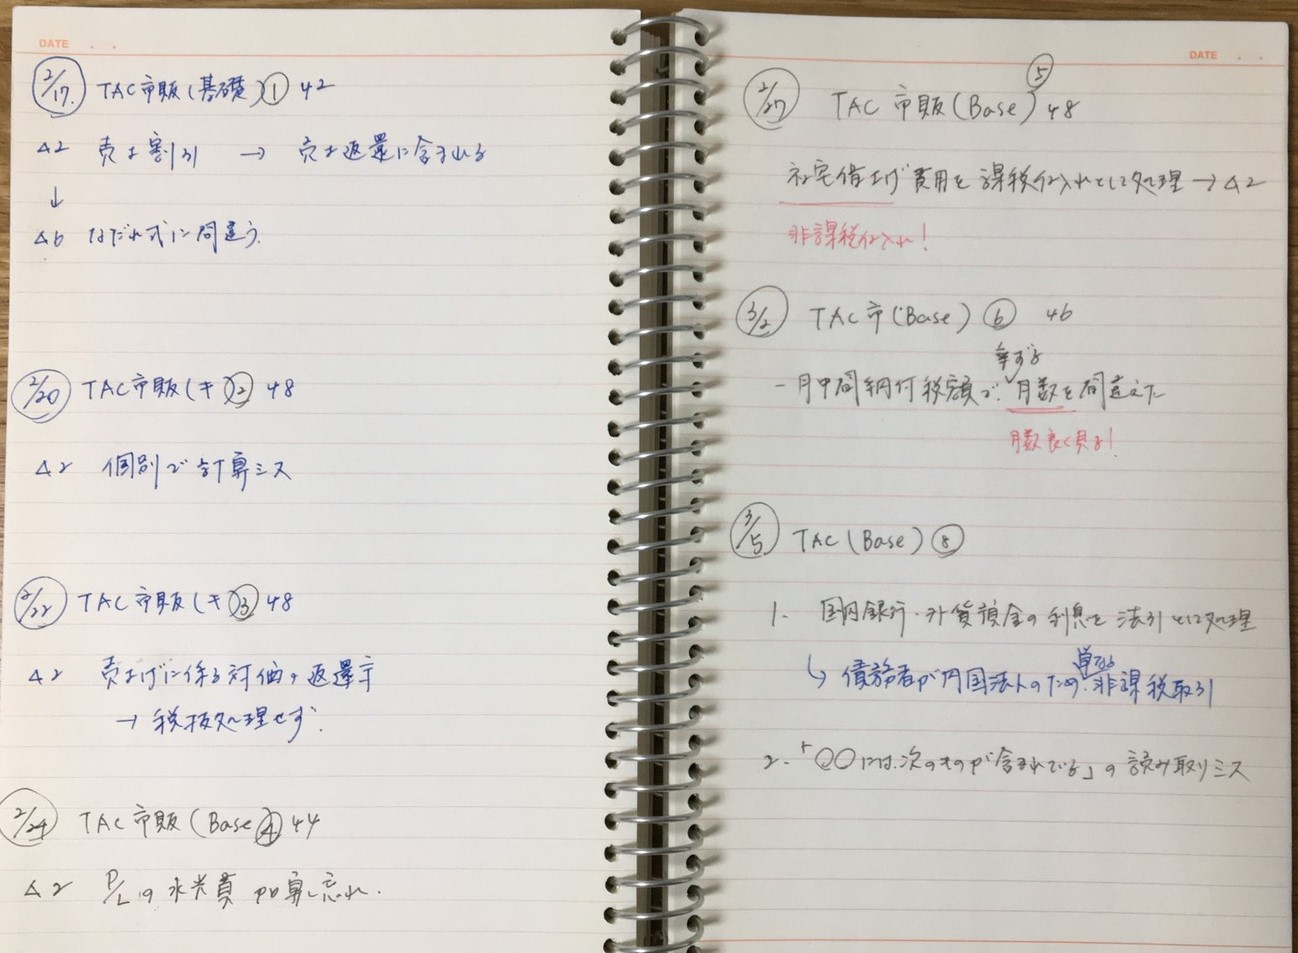 DATE . .
2/17 TAC市販(基礎)① 42
△2 売上割引 → 売上返還に含まれる
↓
△6 なだれ式に間違う.
2/20 TAC市販(キ)② 48
△2 個別で計算ミス
2/22 TAC市販(キ)③ 48
△2 売上げに係る対価の返還等
→ 税抜処理せず.
2/24 TAC市販(Base)④ 44
△2 P/Lの水光費 加算し忘れ.
DATE . .
2/27 TAC市販(Base)⑤ 48
社宅借上げ費用を課税仕入れとして処理→△2
非課税仕入れ!
3/2 TAC市(Base)⑥ 46
乗ずる
一月中間納付税額で、月数を間違えた
月数良く見る!
3/5 TAC(Base)⑧
1. 国内銀行・外貨預金の利息を法31として処理
単なる
↳ 債務者が内国法人のため、非課税取引
2.「〇〇には次のものが含まれている」の読み取りミス